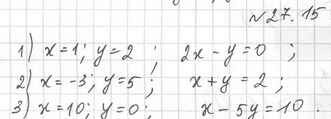 №27.15
1) x=1; y=2 ; 2x-y=0 ;
2) x=-3; y=5 ; x+y=2 ;
3) x=10; y=0; x-5y=10.